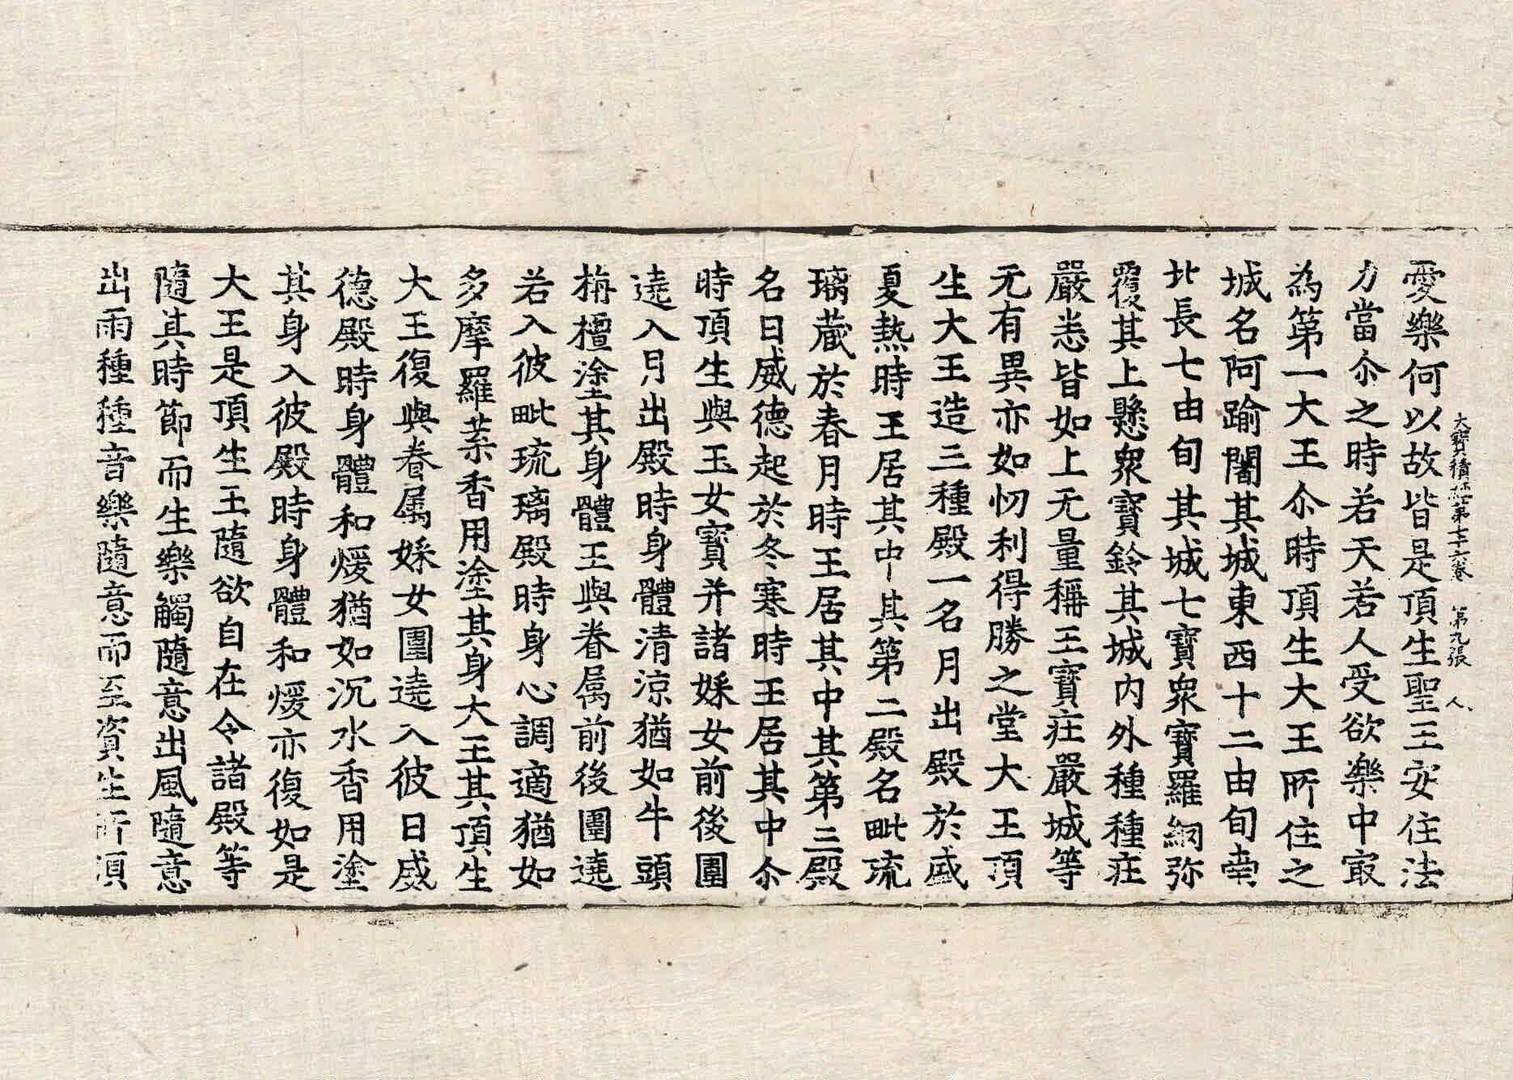 愛樂何以故皆是頂生聖王安住法
大寶積經第七十六卷　第九張　人
力當尒之時若天若人受欲樂中㝡
為第一大王尒時頂生大王所住之
城名阿踰闍其城東西十二由旬南
北長七由旬其城七寶衆寶羅網弥
覆其上懸衆寶鈴其城内外種種莊
嚴悉皆如上无量稱王寶莊嚴城等
无有異亦如忉利得勝之堂大王頂
生大王造三種殿一名月出殿於盛
夏熱時王居其中其第二殿名毗琉
璃蔵於春月時王居其中其第三殿
名日威德起於冬寒時王居其中尒
時頂生與玉女寶并諸婇女前後圍
遶入月出殿時身體清涼猶如牛頭
栴檀塗其身體王與眷属前後圍遶
若入彼毗琉璃殿時身心調適猶如
多摩羅葉香用塗其身大王其頂生
大王復與眷属婇女圍遶入彼日威
德殿時身體和煖猶如沉水香用塗
其身入彼殿時身體和煖亦復如是
大王是頂生王隨欲自在令諸殿等
隨其時節而生樂觸隨意出風隨意
出雨種種音樂隨意而至資生所須